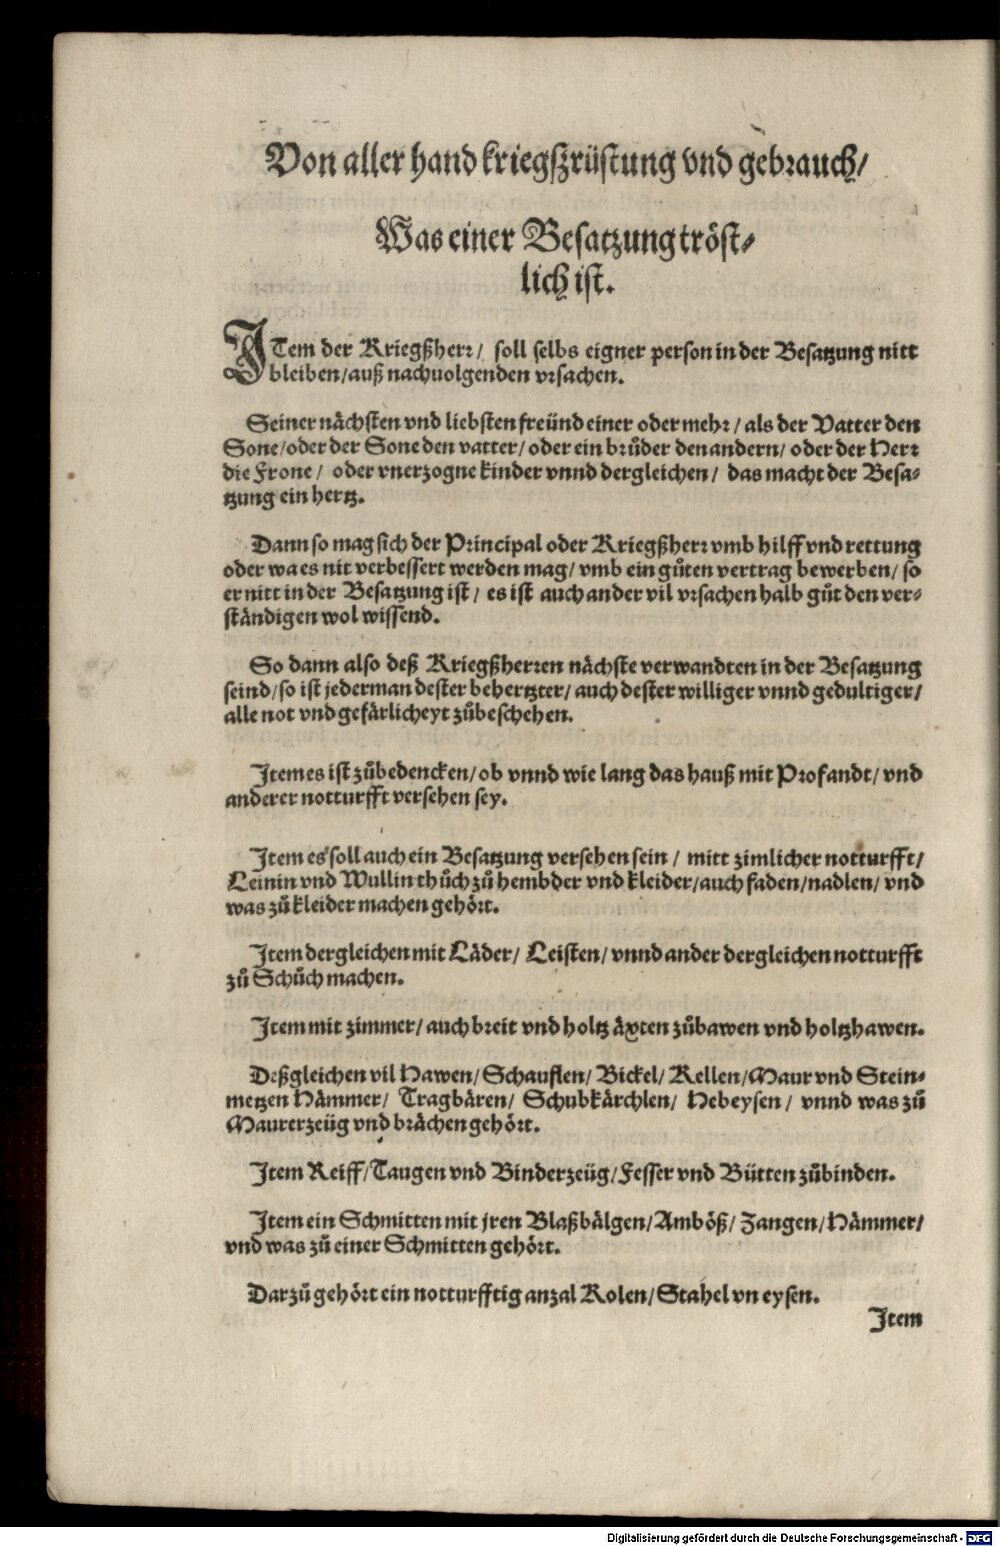 Von aller hand kriegßrüstung vnd gebrauch/
Was einer Besatzung tröst⸗
lich ist.
ITem der Kriegßherr/ soll selbs eigner person in der Besatzung nitt
bleiben/auß nachuolgenden vrsachen.
Seiner nächsten vnd liebsten freünd einer oder mehr/als der Vatter den
Sone/oder der Sone den vatter/oder ein brůder den andern/ oder der Herr
die Frone/ oder vnerzogne kinder vnnd dergleichen/ das macht der Besa⸗
tzung ein hertz.
Dann so mag sich der Principal oder Kriegßherr vmb hilff vnd rettung
oder wa es nit verbessert werden mag/vmb ein gůten vertrag bewerben/ so
er nitt in der Besatzung ist/ es ist auch ander vil vrsachen halb gůt den ver⸗
ständigen wol wissend.
So dann also deß Kriegßherren nächste verwandten in der Besatzung
seind/so ist jederman dester behertzter/auch dester williger vnnd gedultiger/
alle not vnd gefärlicheyt zůbeschehen.
Item es ist zůbedencken/ob vnnd wie lang das hauß mit Profandt/vnd
anderer notturfft versehen sey.
Item es soll auch ein Besatzung versehen sein/ mitt zimlicher notturfft/
Leinin vnd Wullin thůch zů hembder vnd kleider/auch faden/nadlen/ vnd
was zů kleider machen gehört.
Item dergleichen mit Läder/ Leisten/vnnd ander dergleichen notturfft
zů Schůch machen.
Item mit zimmer/auch breit vnd holtz äxten zůbawen vnd holtzhawen.
Deßgleichen vil Hawen/Schauflen/Bickel/Kellen/Maur vnd Stein⸗
metzen Hämmer/ Tragbären/ Schubkärchlen/ Hebeysen/ vnnd was zů
Maurerzeüg vnd brächen gehört.
Item Reiff/Taugen vnd Binderzeüg/Fesser vnd Bütten zůbinden.
Item ein Schmitten mit jren Blaßbälgen/Amböß/Zangen/Hämmer/
vnd was zů einer Schmitten gehört.
Darzů gehört ein notturfftig anzal Kolen/Stahel vn eysen.
Item
Digitalisierung gefördert durch die Deutsche Forschungsgemeinschaft - DFG